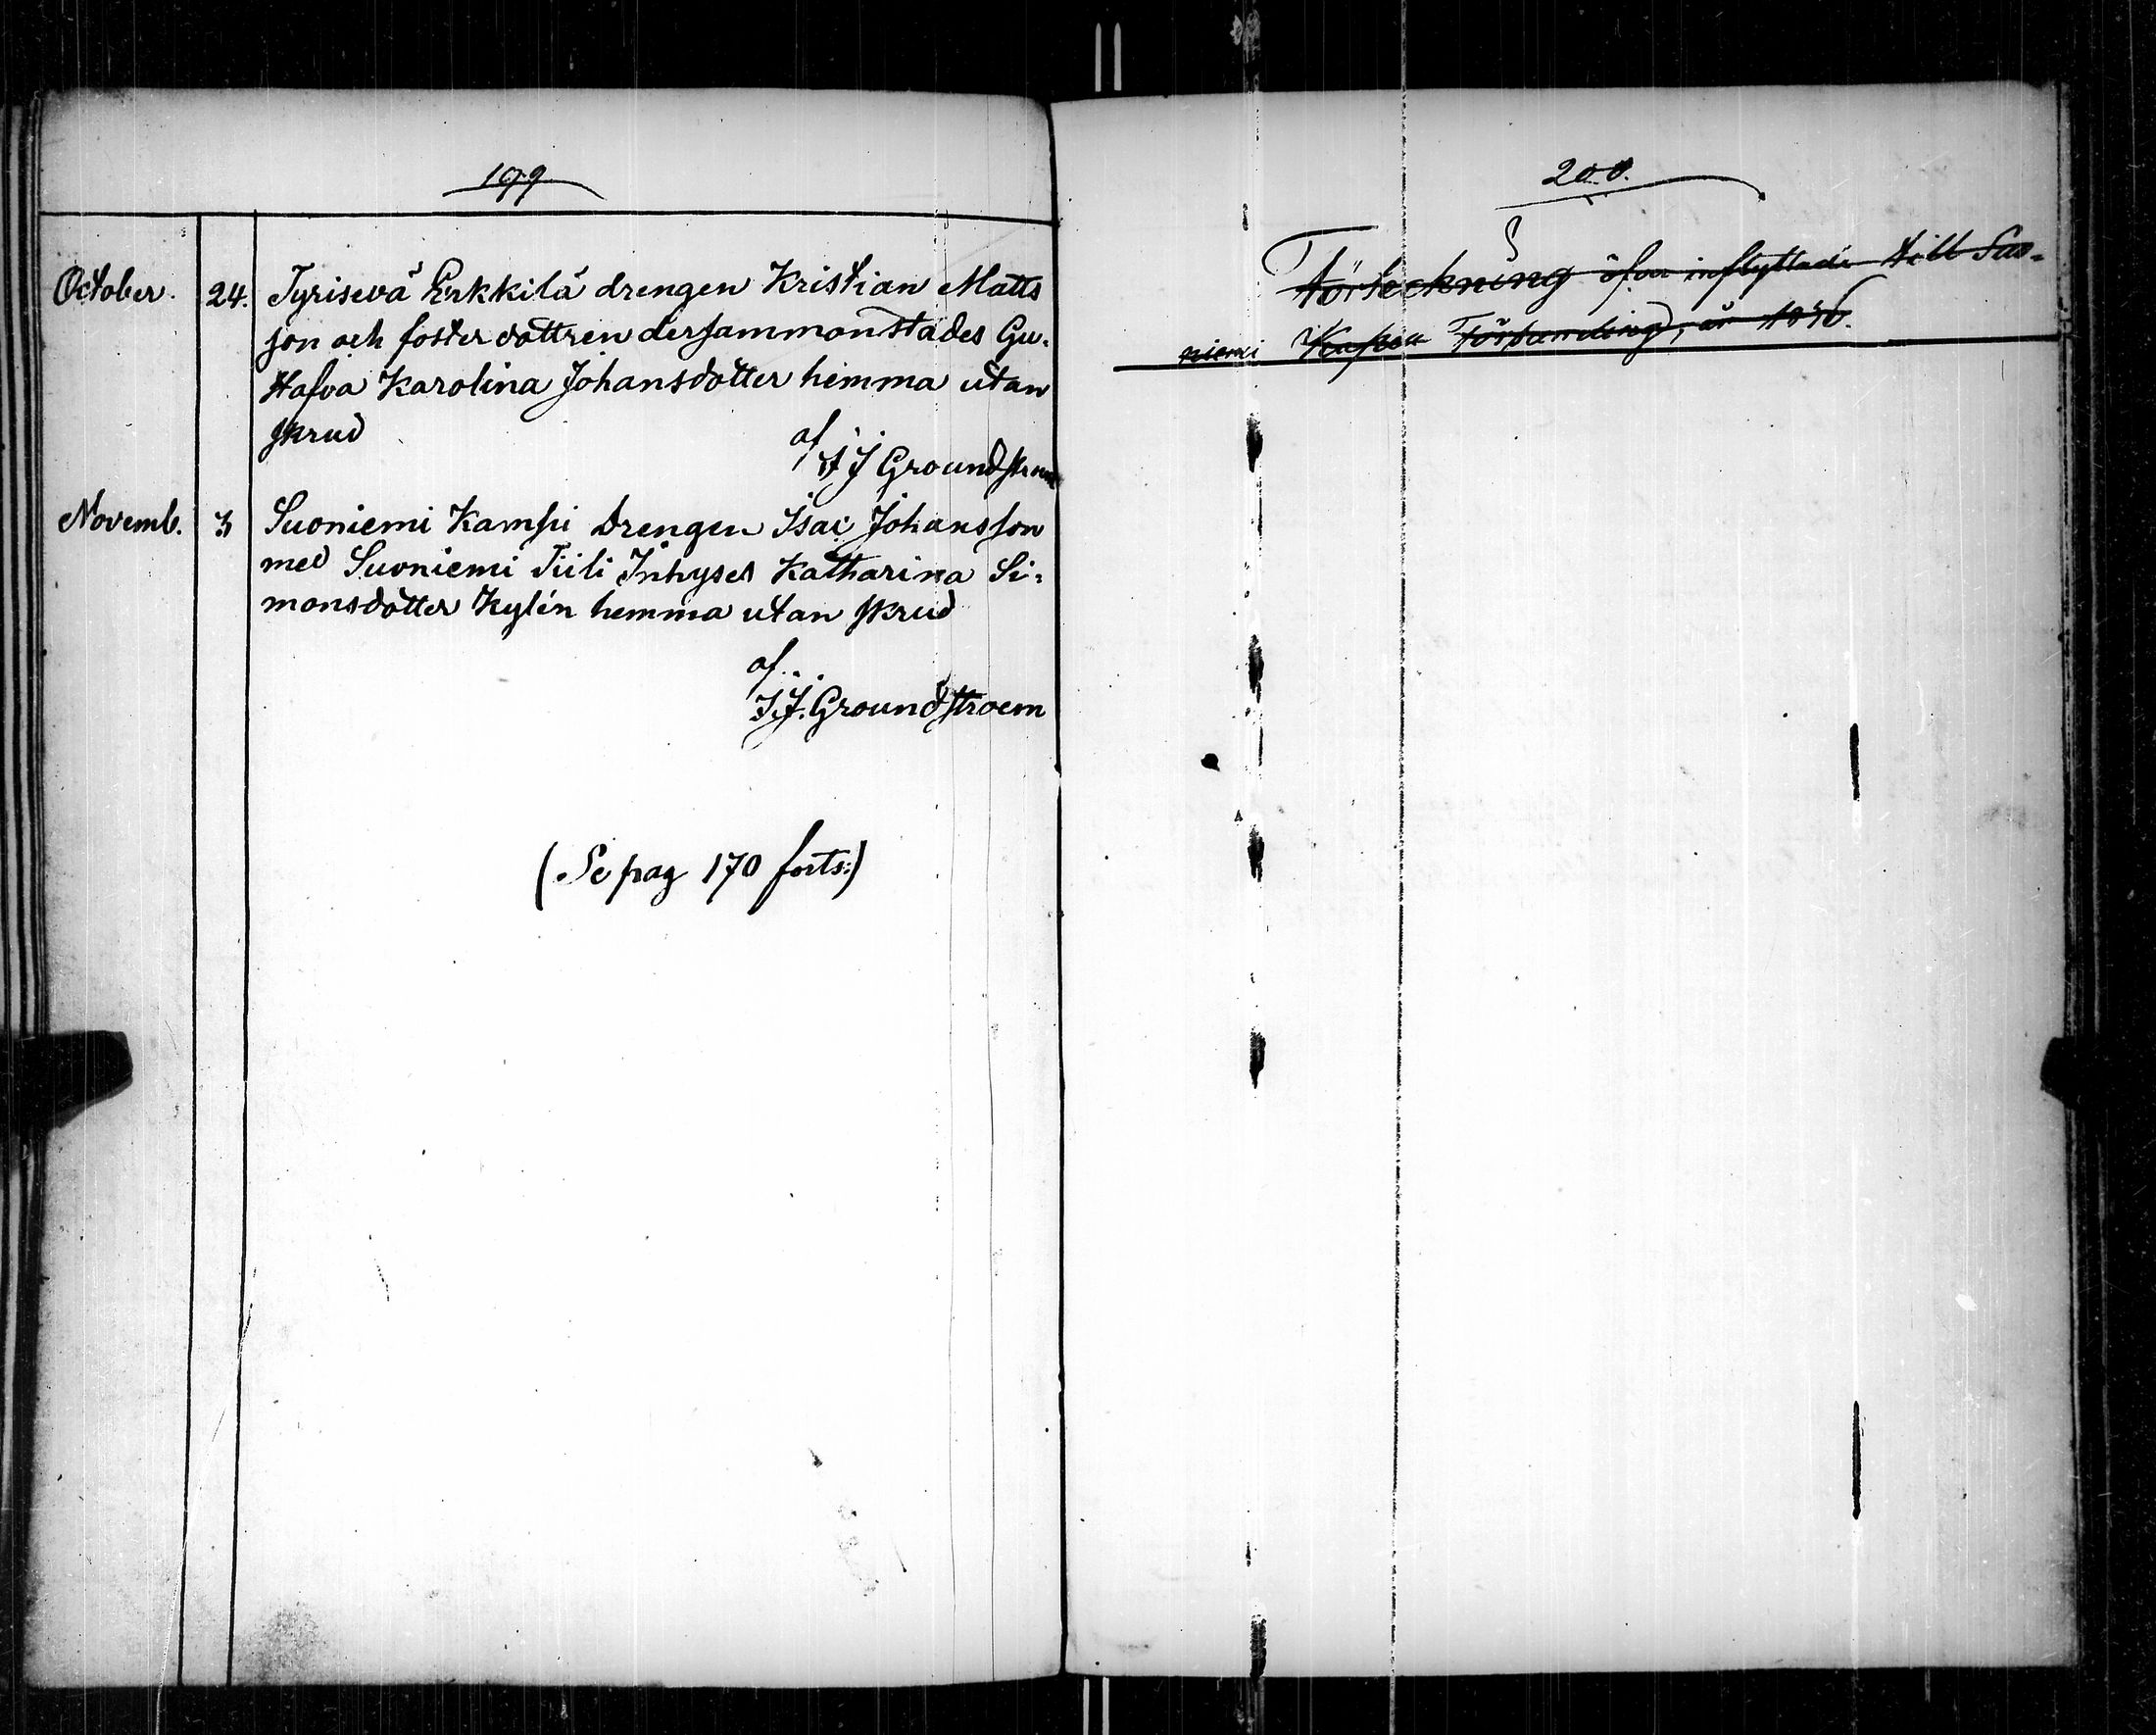 199
October. 24. Tyrisevä Erkkilä drengen Kristian Matts
son och foster dottren dersammonstädes Gu-
stafva Karolina Johansdotter hemma utan
skrud
af
J J Groundstroem
Novemb. 3 Suoniemi Kamppi Drengen Isac Johansson
med Suoniemi Tiili Inhyses Katharina Si-
monsdotter Kylén hemma utan skrud
af
J. J. Groundstroem
(Se pag 170 forts:)
200.
Förteckning öfver inflyttade till Suo-
niemi Kapell Församling, år